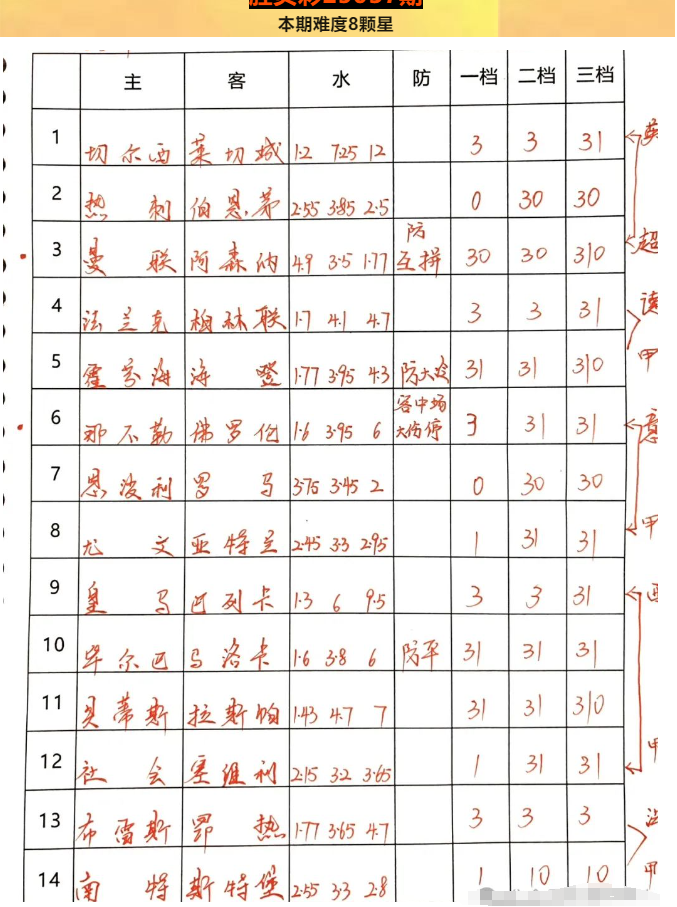 本期难度8颗星
主 客 水 防 一档 二档 三档
1 切尔西 莱切城 1.2 7.25 12 3 3 31
2 热刺 伯恩茅 2.55 3.85 2.5 0 30 30
3 曼联 阿森纳 4.9 3.5 1.77 防互拼 30 30 310
4 法兰克 柏林联 1.7 4.1 4.7 3 3 31
5 霍芬海 海登 1.77 3.95 4.3 防大冷 31 31 310
6 那不勒 佛罗伦 1.6 3.95 6 客中场大伤停 3 31 31
7 恩波利 罗马 3.75 3.45 2 0 30 30
8 尤文 亚特兰 2.45 3.3 2.95 1 31 31
9 皇马 巴列卡 1.3 6 9.5 3 3 31
10 毕尔巴 马洛卡 1.6 3.8 6 防平 31 31 31
11 贝蒂斯 拉斯帕 1.43 4.7 7 31 31 310
12 社会 塞维利 2.15 3.2 3.65 1 31 31
13 布雷斯 昂热 1.77 3.65 4.7 3 3 3
14 南特 斯特堡 2.55 3.3 2.8 1 10 10
英超
德甲
意甲
西甲
法甲